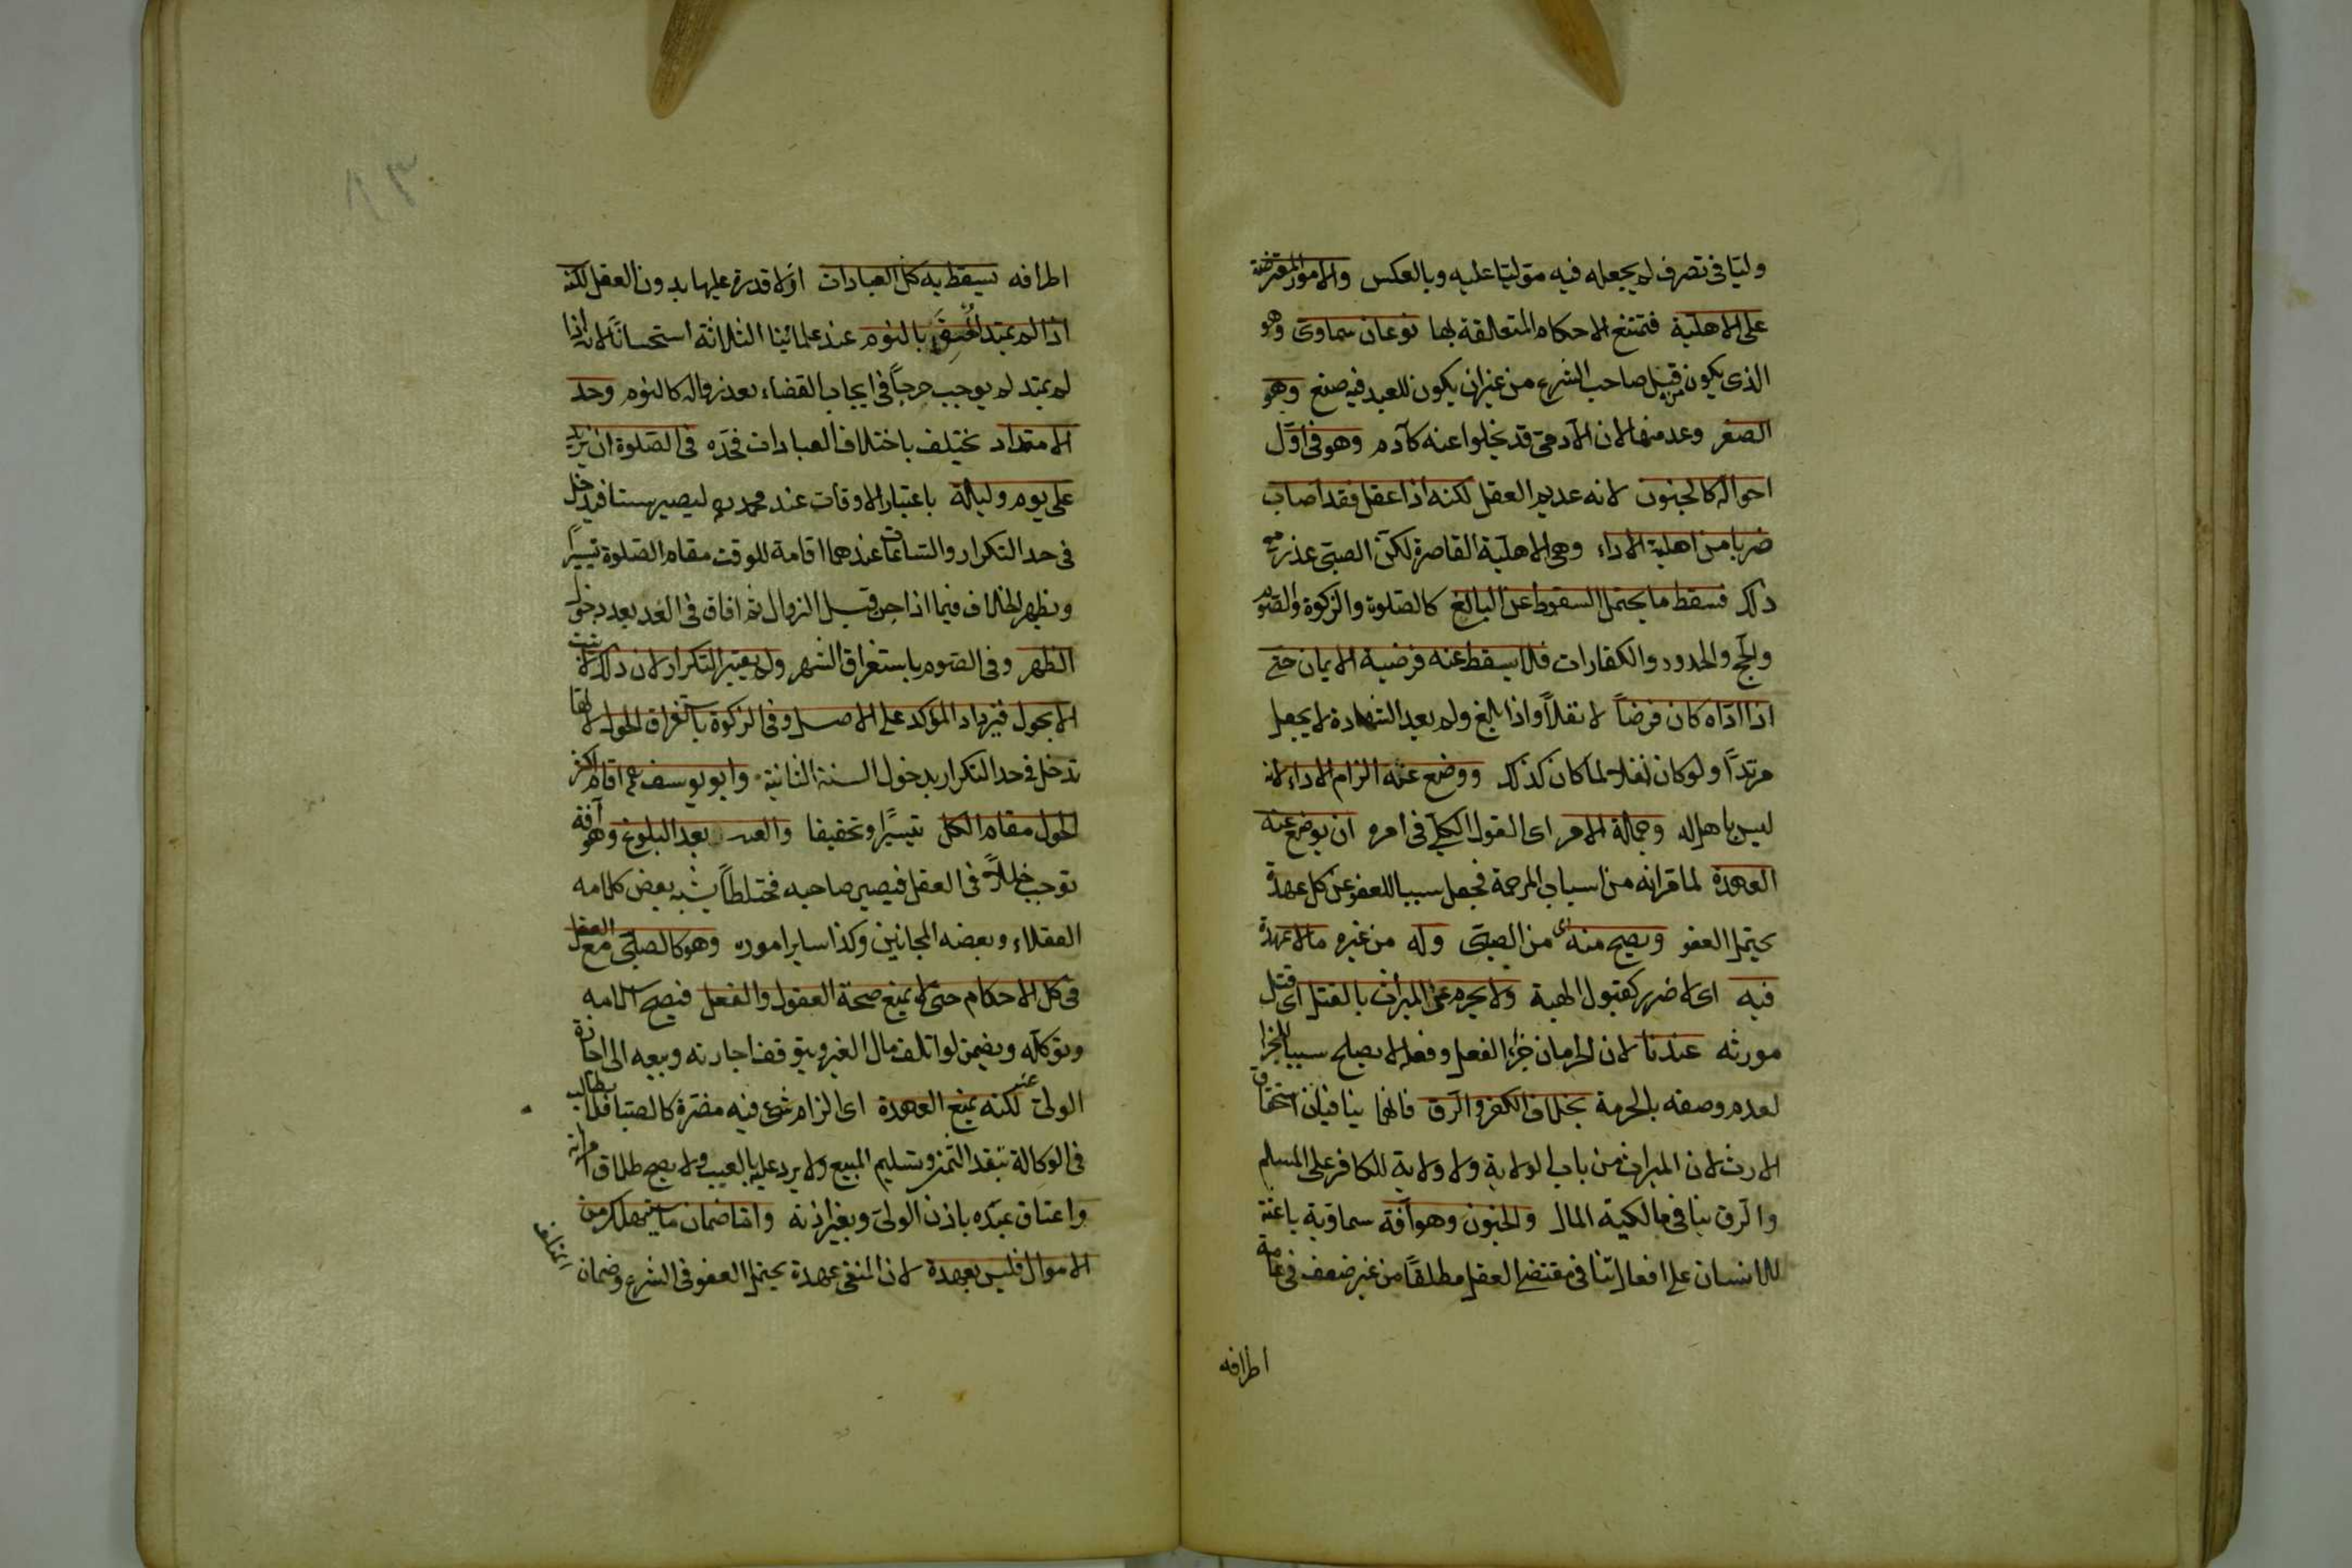 وليا فى تصرف لم يجعله فيه موليا عليه وبالعكس والامور المعترضة
على الاهلية فتمتنع الاحكام المتعالقة بها نوعان سماوى وهو
الذى يكون من قبل صاحب الشرع من غيران يكون للعبد فيه صنع وهو
الصغر وعد منها لان الآدمى قد يخلوا عنه كآدم وهو فى اوّل
احواله كالجنون لانه عديم العقل لكنه اذا عقل فقد اصاب
ضربا من اهلية الاداء وهى الاهلية القاصرة لكن الصبى عذر مع
ذلك فسقط ما يحتمل السقوط عن البالغ كالصلوة والزكوة والصوم
والحج والحدود والكفارات فلا يسقط عنه فرضية الايمان حتى
اذا ادّاه كان فرضاً لا نفلاً واذا بلغ ولم يعد الشهادة لا يجعل
مرتدّاً ولو كان نفلا لما كان كذلك ووضع عنه الزام الاداء لانه
ليس باهل له وجملة الامر اى القول الكلى فى امره ان يوضع عنه
العهدة لما قرانه من اسباب المرحمة فجعل سببا للعفو عن كل عهدة
يحتمل العفو ويصح منه اى من الصبى وله من غيره ما لا عهدة
فيه اى لا ضرر كقبول الهبة ولا يحرم عن الميراث بالقتل اى قتل
مورثه عندنا لان الحرمان جزاء الفعل وفعله لا يصلح سببا للجزا
لعدم وصفه بالحرمة بخلاف الكفر والرق فانهما ينافيان استحقاق
الارث لان الميراث من باب الولاية ولا ولاية للكافر على المسلم
والرق ينافى مالكية المال والجنون وهو آفة سماوية باعثة
للانسان على افعال تنافى مقتضى العقل مطلقاً من غير ضعف فى عامة
اطرافه
اطرافه يسقط به كل العبادات اذ لا قدرة عليها بدون العقل لكنه
اذا لم يمتد الحق بالنوم عند علمائنا الثلاثة استحسانا لانه اذا
لم يمتد لم يوجب حرجاً فى ايجاب القضاء بعد زواله كالنوم وحد
الامتداد يختلف باختلاف العبادات فحدّه فى الصلوة ان يزيد
على يوم وليلة باعتبار الاوقات عند محمد ره ليصير ستا فيدخل
فى حد التكرار والساعات عندهما اقامة للوقت مقام الصلوة تيسيراً
ويظهر الخلاف فيما اذا جن قبل الزوال ثم افاق فى الغد بعد دخول
الظهر وفى الصوم باستغراق الشهر ولم يعتبر التكرار لان ذلك لا يثبت
الا بحول فيزداد المؤكد على الاصل وفى الزكوة باستغراق الحول لانها
تدخل فى حد التكرار بدخول السنة الثانية وابو يوسف اقام اكثر
الحول مقام الكل تيسيرا وتخفيفا والعته بعد البلوغ وهو آفة
توجب خللاً فى العقل فيصير صاحبه مختلطاً يشبه بعض كلامه
العقلاء وبعضه المجانين وكذا ساير اموره وهو كالصبى مع العقل
فى كل الاحكام حتى لا يمنع صحة القول والفعل فيصح اسلامه
وتوكله ويضمن لو اتلف مال الغير ويتوقف اجارته وبيعه الى اجازة
الولى لكنه يمنع العهدة اى الزام شئ فيه مضرة كالصبا فلا يطالب
فى الوكالة بنقد الثمن وتسليم المبيع ولا يرد عليه بالعيب ولا يصح طلاق امراته
واعتاق عبده باذن الولى وبغير اذنه واما ضمان ما يستهلك من
الاموال فليس بعهدة لان المنفى عهدة يحتمل العفو فى الشرع وضمان
المتلف